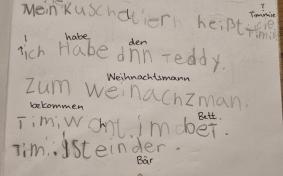 ?
Timmie
Mein Kuschltiern heißt Timi
! habe den
ich Habe dnn Teddy.
Weihnachtsmann
Zum Weinachzman.
bekommen Bett.
Timi Wont im bet.
Timi. Ist einder.
Bär